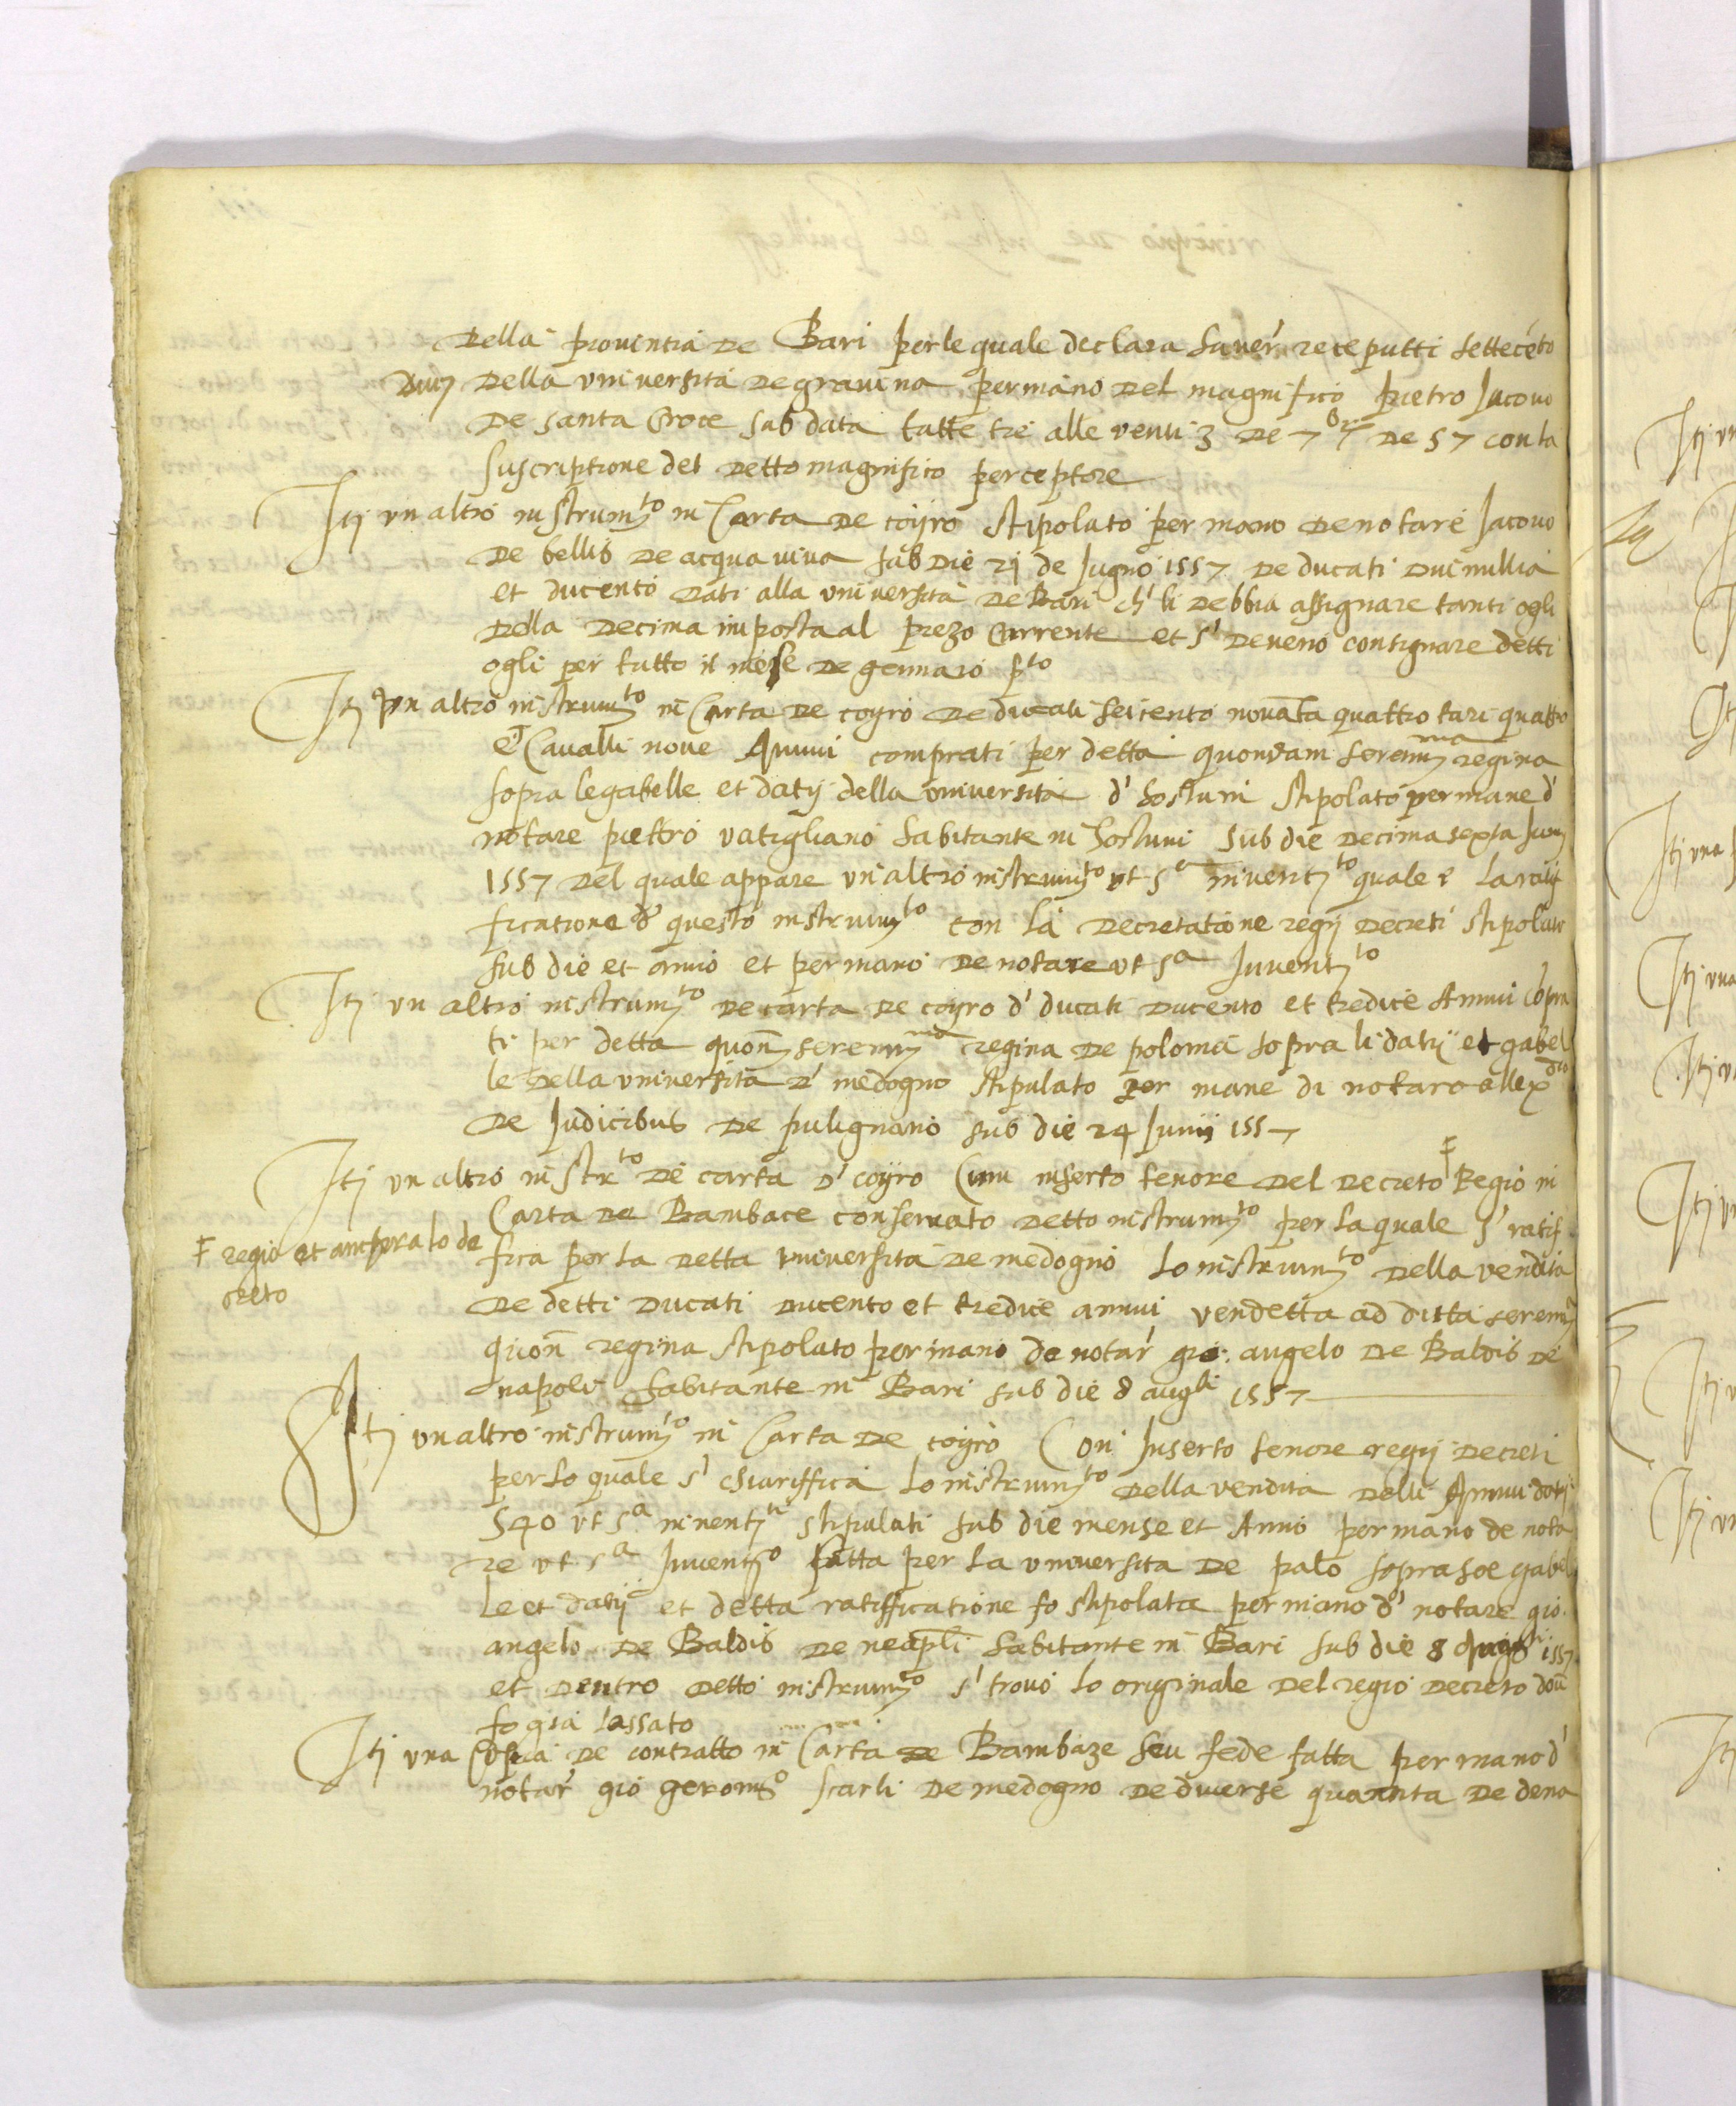 Della provintia de Bari per le quale declara haver' receputti settece̅to
Duc̅ della università de gravina per mano del magnifico pietro Jacovo
De santa Croce sub data tutte tre alle venti 3 de 7bre de 57 con la
suscriptione del detto magnifico perceptore
Ite̅ un altro instrum̅to in Carta de coyro stipolato per mano de notare Jacovo
De bellis de acqua viva sub die 21 de Jugno 1557 de ducati dui millia
et ducento dati alla università de Bari ch' li debbia assignare tanti ogli
Della decima imposta al prezo corrente et s' deveno consignare detti
ogli per tutto il mese de gennaro p̅to
Ite̅ un altro instrum̅to in Carta de coyro de ducati seicento novа̅ta quattro tari quattro
et Cavalli nove Annui comprati per detta quondam seren̅ma regina
sopra le gabelle et datij della università d' hostuni stipolato per mane d'
notare piettro vatigliano habitante in hostuni sub die decima sexta Jun̅
1557 del quale appare un altro instrum̅to ut s̅a invent̅to quale è la rati
ficatione d' questo instrum̅to con la decretatione regij decreti stipolato
sub die et anno et per mano de notare ut s̅a Invent̅to
Ite̅ un altro instrum̅to de carta de coyro d' ducati ducento et tredice Annui co̅pra
ti per detta quon̅ seren̅ma regina de polonia sopra li datij et gabel
le della università d' medogno stipulato per mane di notaro allex̅dro
De Judicibus de pulignano sub die 24 Junij 1557
Ite̅ un altro instr̅to de carta d' coyro Cum inserto tenore del decreto Ŧ Regio in
Carta de Bambace conservato detto instrum̅to per la quale s' ratif
Ŧ regio et ancora lo de
creto
fica per la detta università de medogno lo instrum̅to della vendita
De detti ducati ducento et tredice annui vendetta ad ditta seren̅
quon̅ regina stipolato per mano de notar' gio: angelo de Baldis de
napoli habitante in Bari sub die 8 augti 1557
Ite̅ un altro instrum̅to in Carta de coyro Con Inserto tenore regij decreti
per lo quale s' chiariffica lo instrum̅to della vendita delli Annui doti
540 ut s̅a invent̅ti stipulati sub die mense et Anno per mano de nota
re ut s̅a Invent̅o fatta per la università de palo sopra soe gabel
le et datij et detta ratifficatione fo stipolata per mano d' notare gio.
angelo de Baldis de neap̅li habitante in Bari sub die 8 Augti 1557
et dentro detto instrum̅to s' trovò lo originale del regio decreto dov̅
fo già lassato
Ite̅ una Copia de contratto in Carta de Bambaze seu fede fatta per mano d'
notar' gio geronim̅o scarli de medogno de diverse quantita de dena